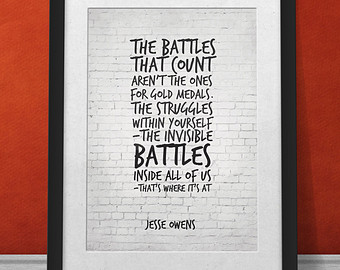 THE BATTLES
THAT COUNT
AREN'T THE ONES
FOR GOLD MEDALS.
THE STRUGGLES
WITHIN YOURSELF
-THE INVISIBLE
BATTLES
INSIDE ALL OF US
-THAT'S WHERE IT'S AT
JESSE OWENS